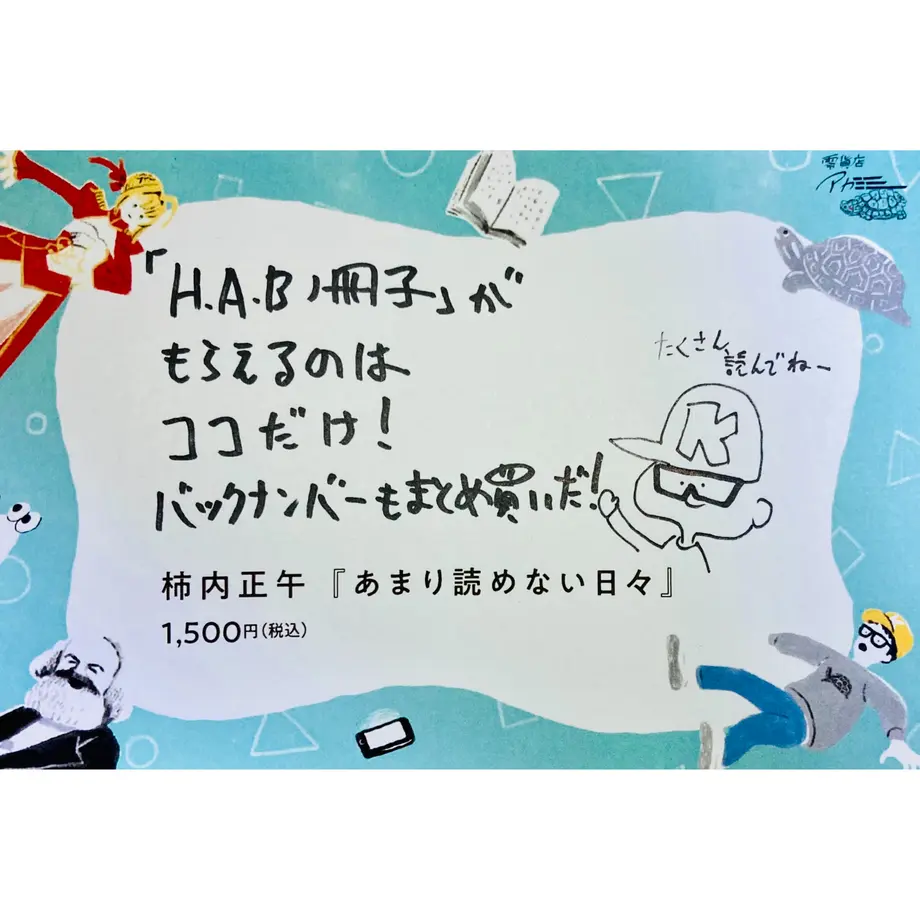 雑貨店
アカミミ
「H.A.Bノ冊子」が
もらえるのは
ココだけ!
バックナンバーもまとめ買いだ!
たくさん
読んでねー
K
柿内正午『あまり読めない日々』
1,500円(税込)